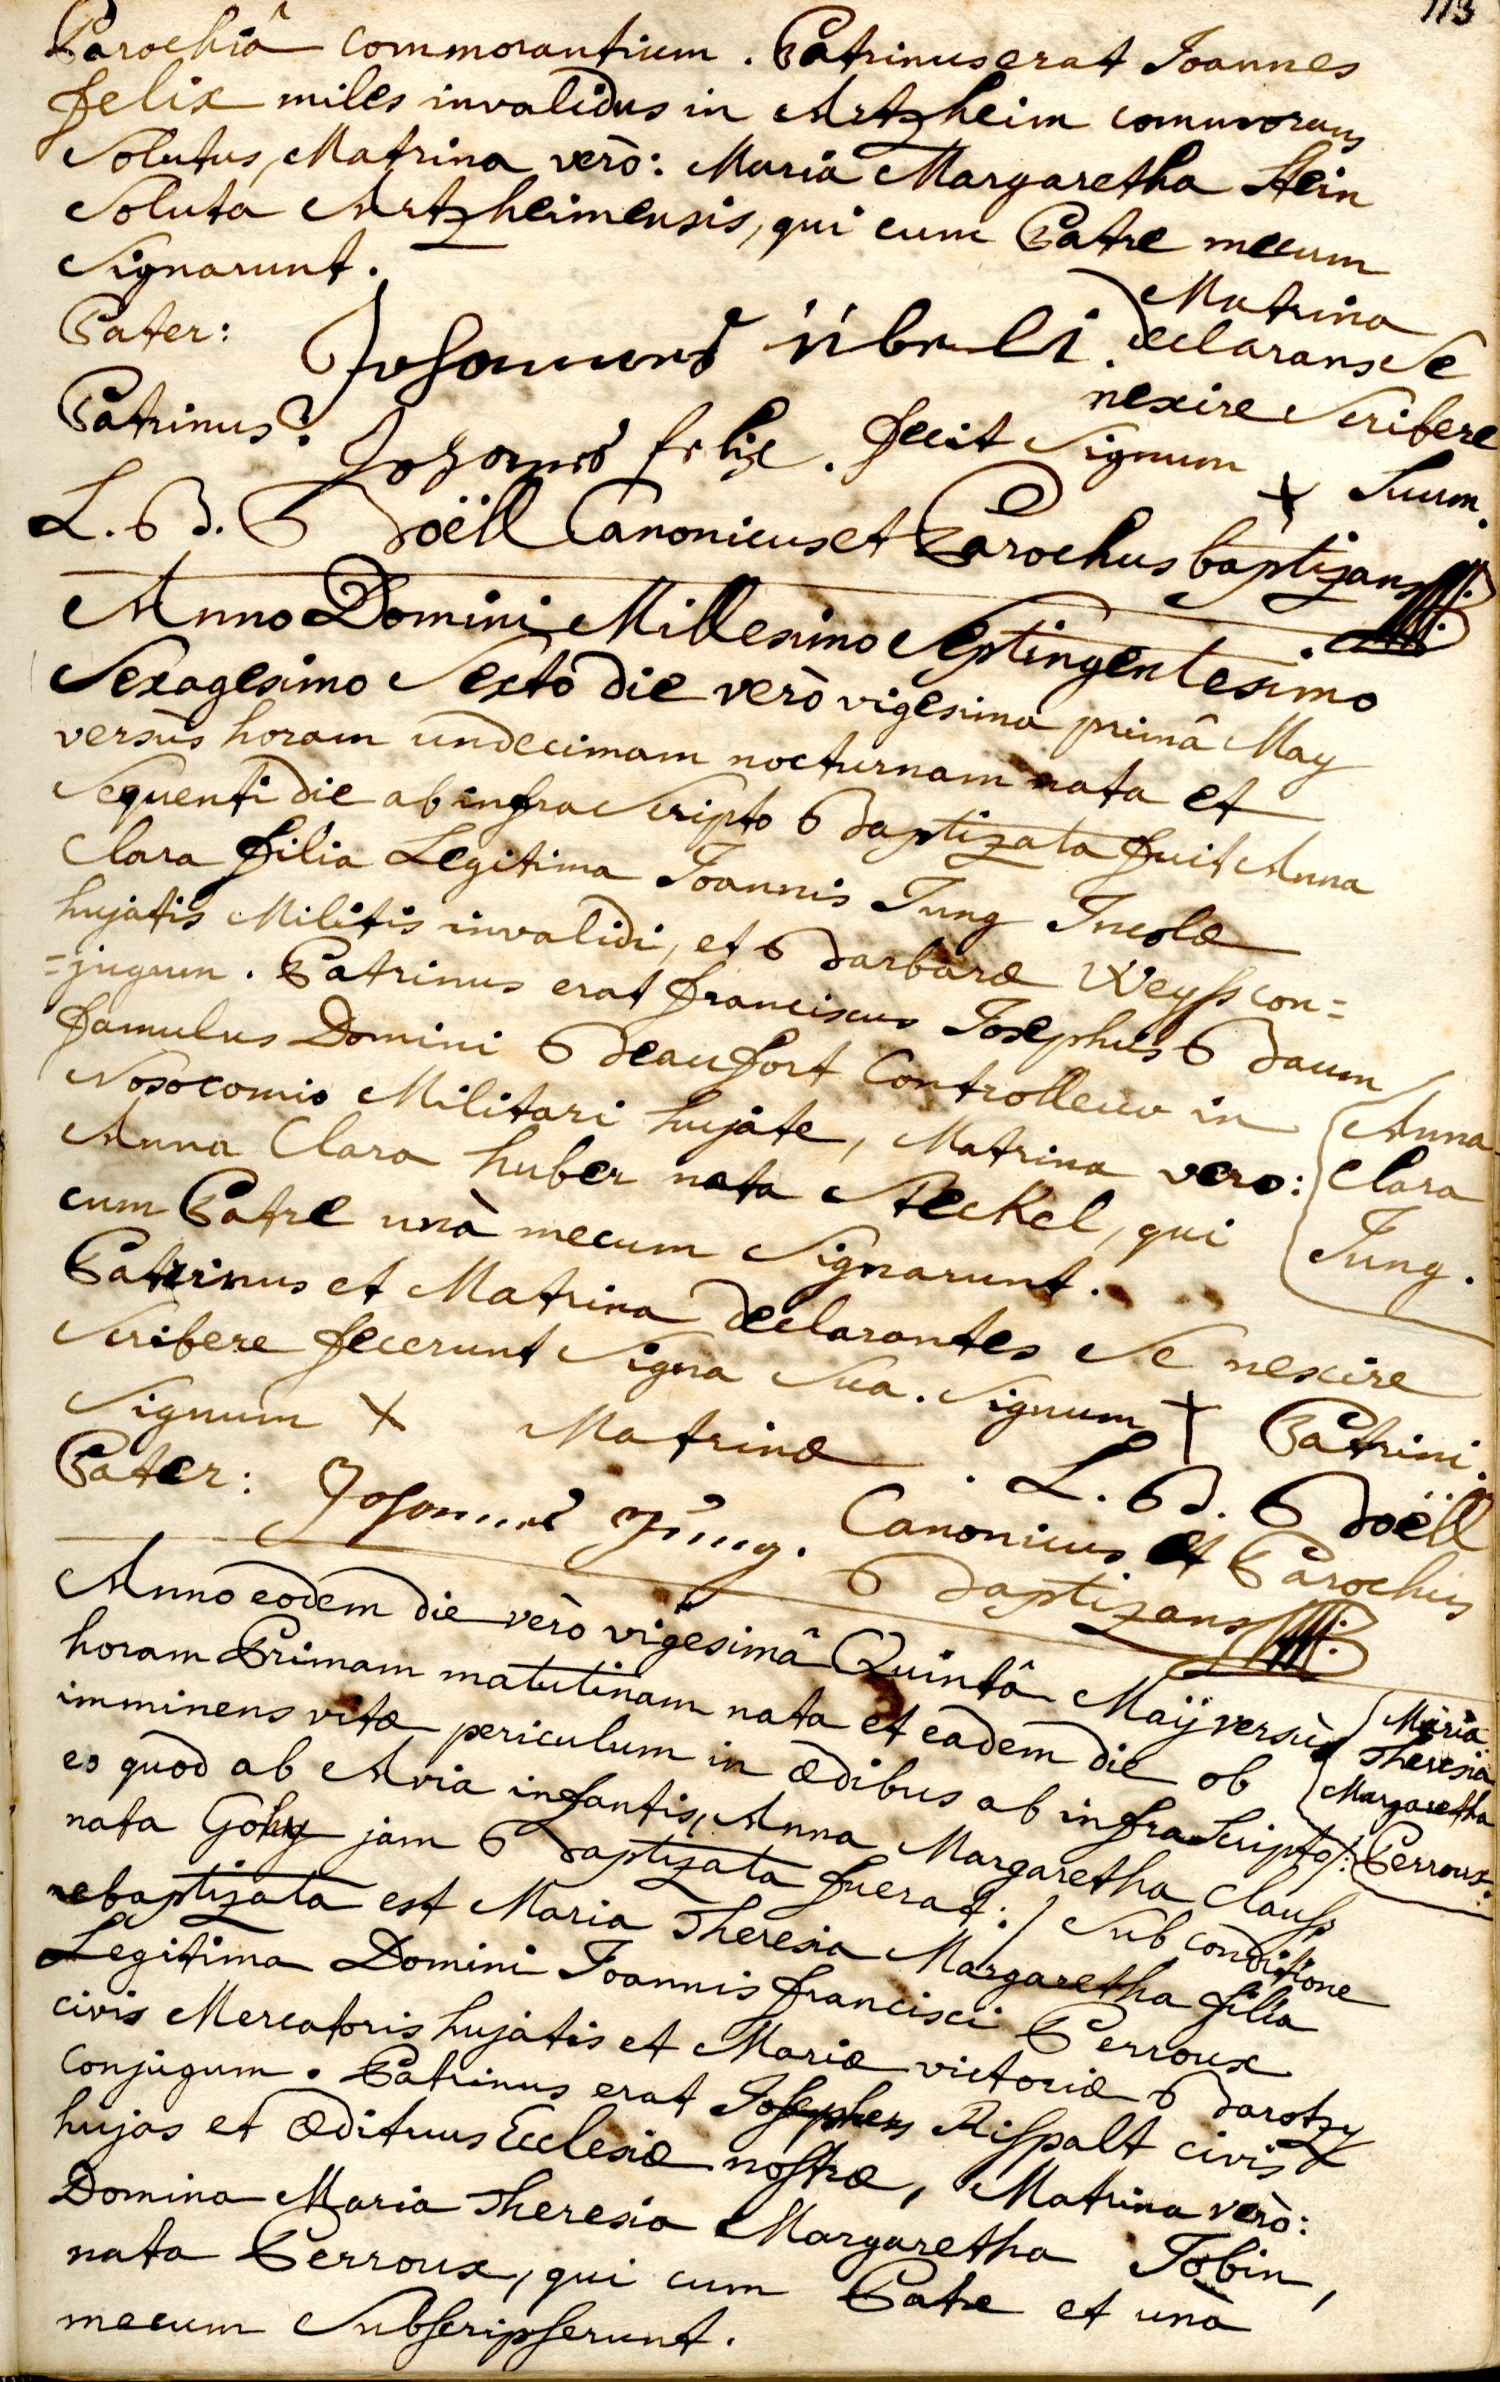 113
Parochiâ commorantium. Patrinus erat Joannes
felix miles invalidus in Artzheim commorans
Solutus, Matrina verò: Maria Margaretha Stein
Soluta Artzheimensis, qui cum Patre mecum
Signarunt.
Pater: Johannes
Matrina
declarans Se
nescire Scribere
Patrinus: Johannes felix. fecit Signum + Suum.
L. B. Boëll Canonicus et Parochus baptizans
Anno Domini Millesimo Septingentesimo
Sexagesimo Sexto die verò vigesima primâ May
versùs horam undecimam nocturnam nata et
Sequenti die ab infra Scripto Baptizata fuit Anna
Clara filia Legitima Joannis Jung Incolæ
hujatis Militis invalidi, et Barbaræ Weyss con=
=jugum. Patrinus erat franciscus Josephus Baum
famulus Domini Beaufort Controlleur in
Nosocomio Militari hujate, Matrina vero:
Anna Clara huber nata Steckel, qui
cum Patre unà mecum Signarunt.
Anna
Clara
Jung.
Patrinus et Matrina declarantes Se nescire
Scribere fecerunt Signa Sua. Signum + Patrini.
Signum + Matrinæ. L. B. Boëll
Pater: Johannes Jung. Canonicus et Parochus
Baptizans
Anno eodem die verò vigesimâ Quintâ Maÿ versùs
horam Primam matutinam nata et eâdem die ob
imminens vitæ periculum in ædibus ab infra Scripto /:
eo quod ab Avia infantis, Anna Margaretha Clauss
nata jam Baptizata fuerat :/ Sub conditione
rebaptizata est Maria Theresia Margaretha filia
Legitima Domini Joannis francisci Perroux
civis Mercatoris hujatis et Mariæ victoriæ Barotzy
Conjugum. Patrinus erat Josephus Rispalt civis
hujas et ædituus Ecclesiæ nostræ, Matrina verò:
Domina Maria Theresia Margaretha Tobin,
nata Perroux, qui cum Patre et unà
mecum Subscripserunt.
Maria
Theresia
Margaretha
Perroux.